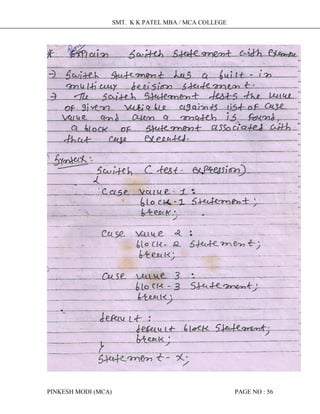 SMT. K K PATEL MBA / MCA COLLEGE
* Explain Switch Statement with Example
→ Switch Statement has a built-in
multiway decision statement.
→ The Switch Statement tests the value
of given variable against list of case
value and when a match is found,
a block of statement associated with
that case executed.
* Syntax:
Switch (test expression)
{
Case value-1 :
block-1 Statement;
break;
Case value 2 :
block-2 Statement;
break;
Case value 3 :
block-3 Statement;
break;
default :
default block Statement;
break;
}
Statement-x;
PINKESH MODI (MCA)
PAGE NO : 56